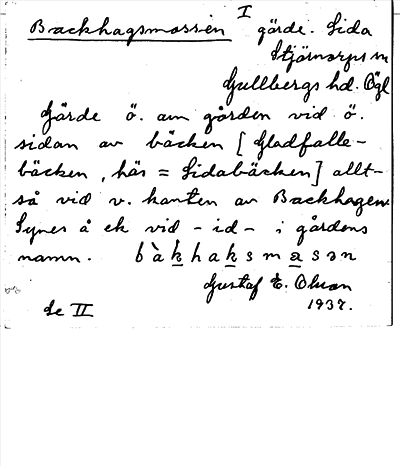 Backhagsmossen I gärde. Sida
Stjärnorps sn
Gullbergs hd. Ögl
Gärde ö. om gården vid ö.
sidan av bäcken [Gladfalle-
bäcken, här = Sidabäcken] allt-
så vid v. kanten av Backhagen
Synes å ek vid - id - i gårdens
namn. bàkhaksmasən
Gustaf E. Olsson
1937.
Se II